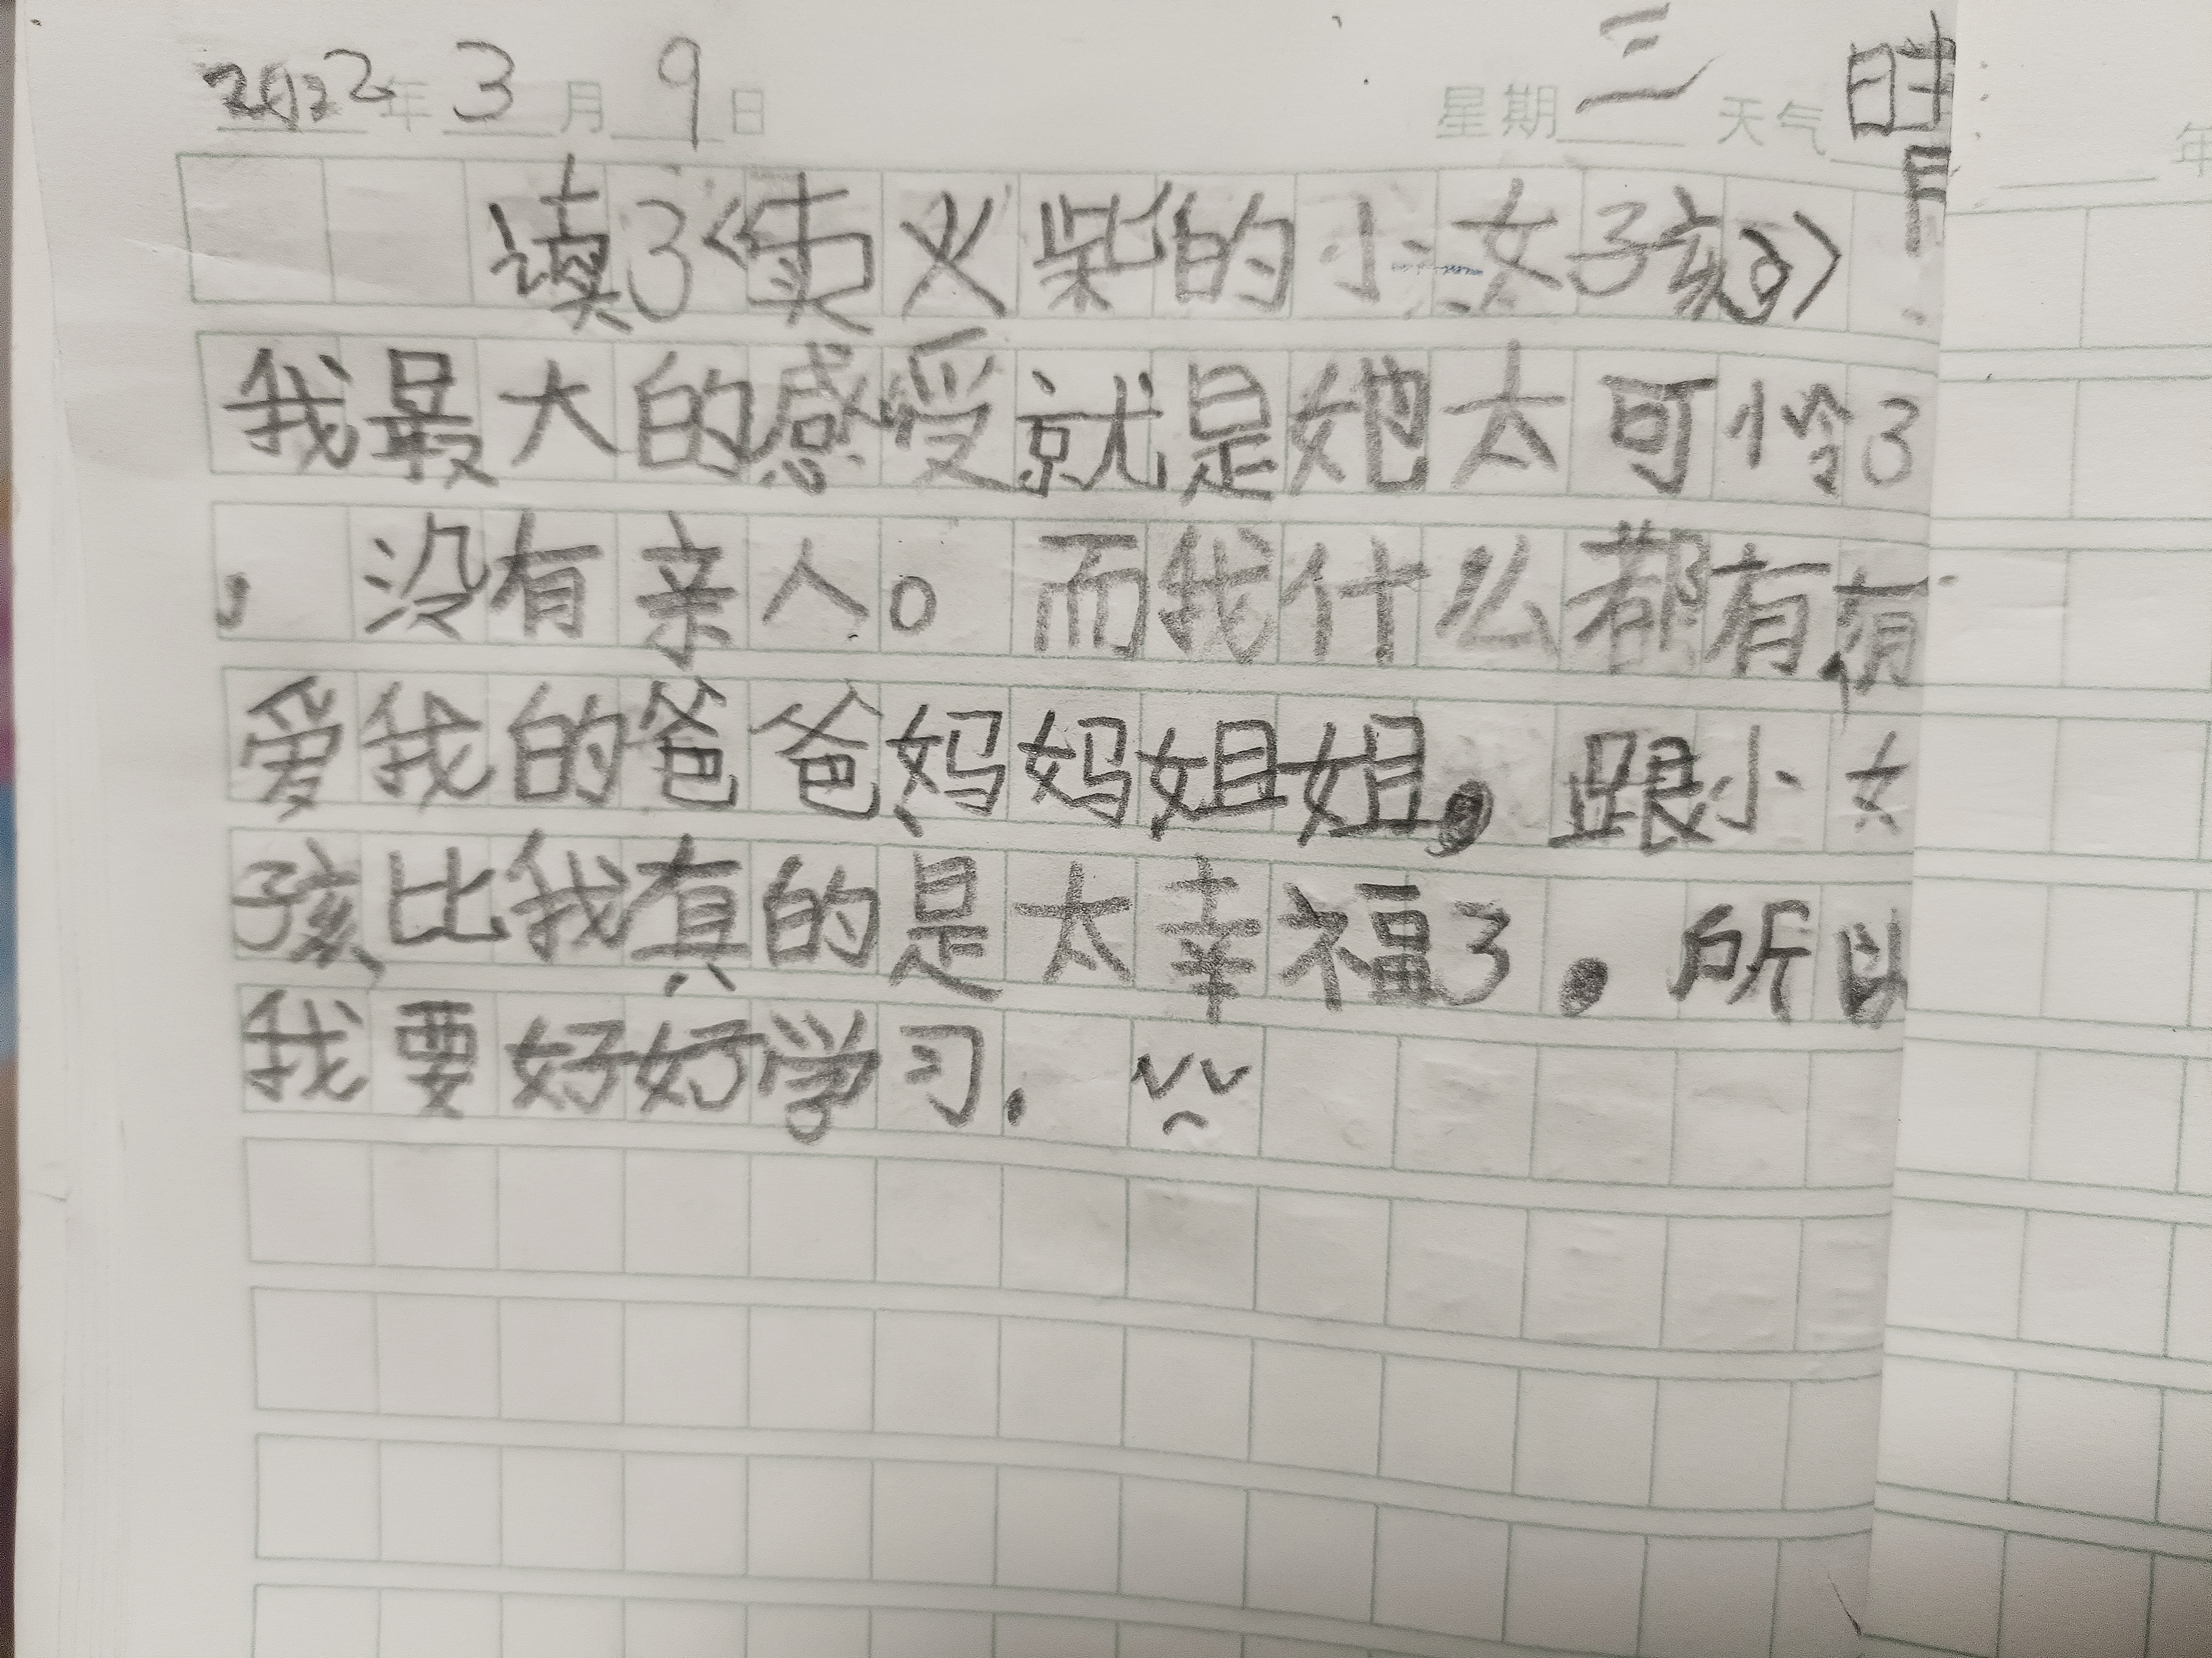 2022年3月9日 星期三 天气晴
读了《卖火柴的小女孩》
我最大的感受就是她太可怜了
，没有亲人。而我什么都有，有
爱我的爸爸、妈妈、姐姐。跟小女
孩比我真的是太幸福了。所以
我要好好学习.
年